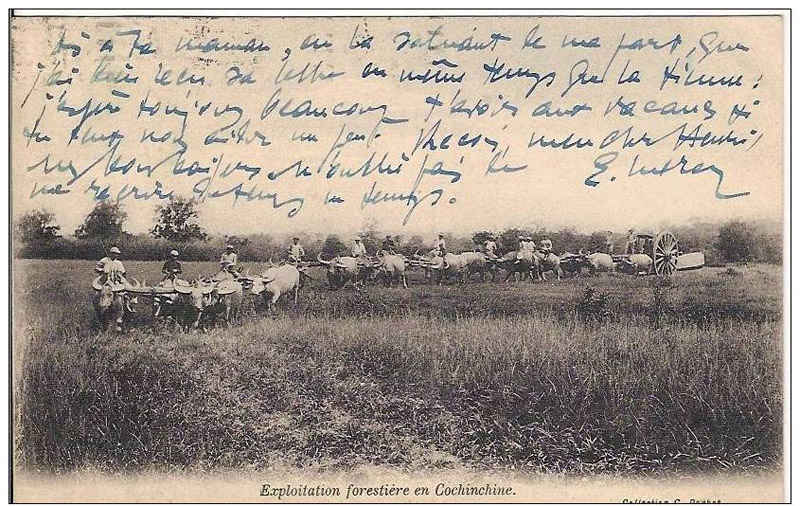 dis à ta maman, en la saluant de ma part, que
j'ai bien reçu sa lettre en même temps que la tienne;
j'espère toujours beaucoup t'avoir aux vacances si
tu peux nous aider un peu. Reçois, mon cher Henri,
mes bons baisers. N'oublie pas de
me            temps en temps.
Exploitation forestière en Cochinchine.
Collection